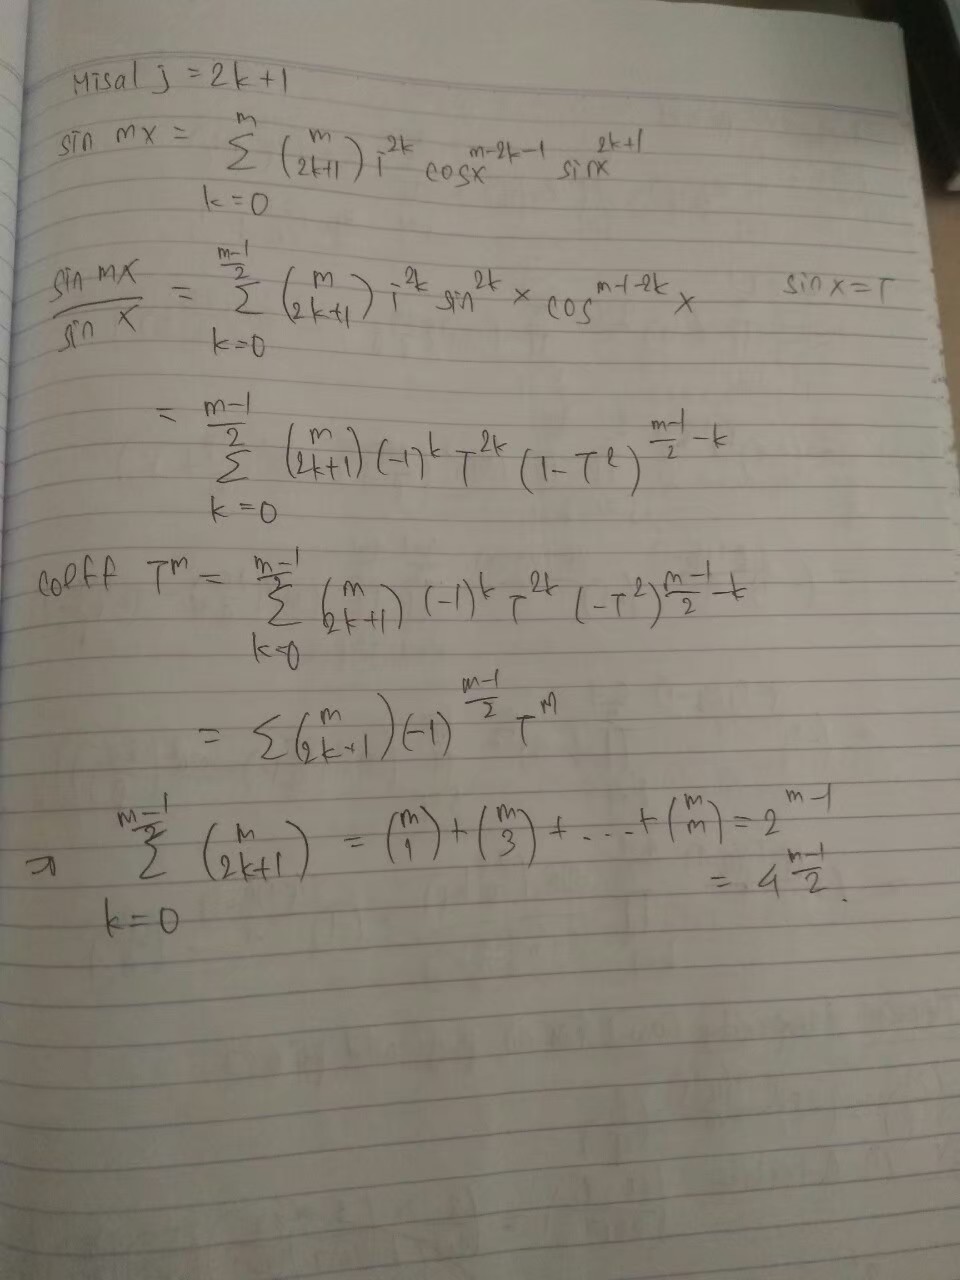 Misal j = 2k+1
sin mx = \sum_{k=0}^{m} \binom{m}{2k+1} i^{2k} cosx^{m-2k-1} sinx^{2k+1}
\frac{sin mx}{sin x} = \sum_{k=0}^{\frac{m-1}{2}} \binom{m}{2k+1} i^{2k} sin^{2k} x cos^{m-1-2k} x sin x = T
= \sum_{k=0}^{\frac{m-1}{2}} \binom{m}{2k+1} (-1)^k T^{2k} (1-T^2)^{\frac{m-1}{2}-k}
coeff T^m = \sum_{k=0}^{\frac{m-1}{2}} \binom{m}{2k+1} (-1)^k T^{2k} (-T^2)^{\frac{m-1}{2}-k}
= \sum \binom{m}{2k+1} (-1)^{\frac{m-1}{2}} T^m
⇒ \sum_{k=0}^{\frac{m-1}{2}} \binom{m}{2k+1} = \binom{m}{1} + \binom{m}{3} + ... + \binom{m}{m} = 2^{m-1}
= 4^{\frac{m-1}{2}}.